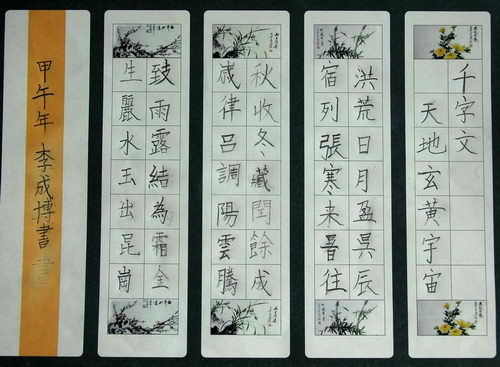 千字文
天地玄黃宇宙
洪荒日月盈昃辰
宿列張寒來暑往
秋收冬藏閏餘成
歲律呂調陽雲騰
致雨露結為霜金
生麗水玉出昆崗
甲午年 李成博書